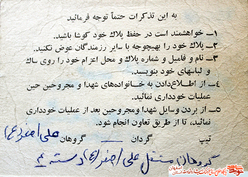 به این تذکرات حتماً توجه فرمائید
۱- خواهشمند است در حفظ پلاک خود کوشا باشید.
۲- پلاک خود را بهیچوجه با سایر رزمندگان عوض نکنید.
۳- نام و فامیل و شماره پلاک و محل اعزام خود را روی ساک و لباسهای خود بنویسید.
۴- از اطلاع دادن به خانواده‌های شهدا و مجروحین حین عملیات خودداری نمائید.
۵- از بردن وسایل شهدا و مجروحین بعد از عملیات خودداری نمائید. تا از طریق تعاون انجام شود.
تیپ گردان علی اصغر (ع) گروهان
گروهان علی اصغر (ع) دسته